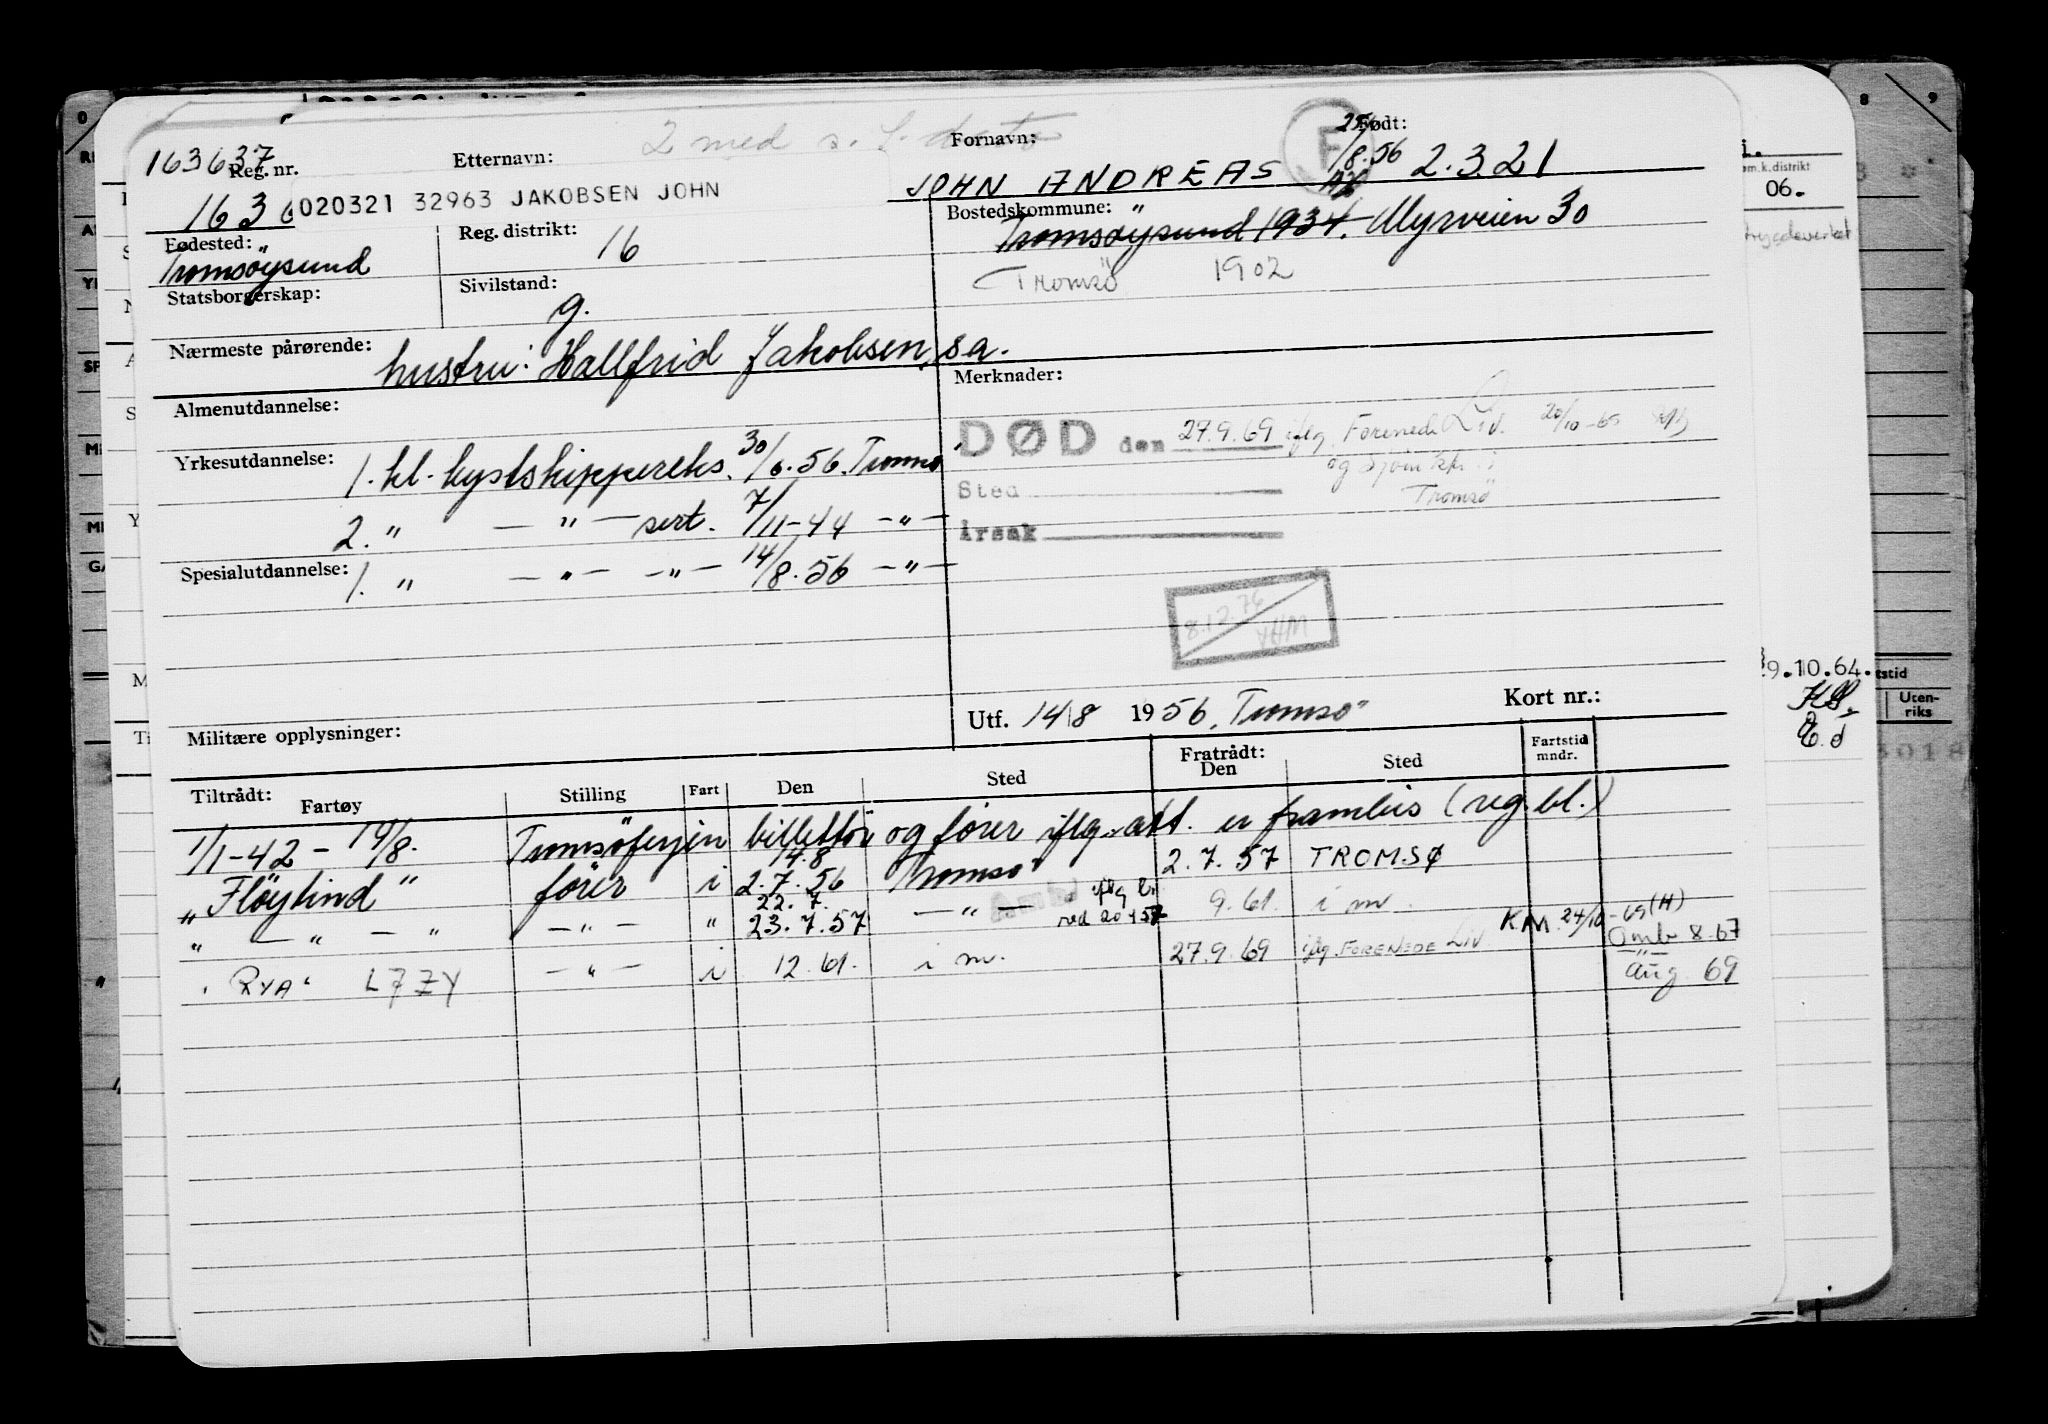 2 med s.
163637
Reg. nr.
Etternavn:
Fornavn:
F
Født:
25/8.56
1636
020321 32963 JAKOBSEN JOHN
JOHN ANDREAS
2.3.21
Fødested:
Tromsøysund
Reg. distrikt:
16
Bostedskommune:
Tromsöysund 1934. Myrveien 30
Tromsö 1902
Statsborgerskap:
Sivilstand:
g.
Nærmeste pårørende:
hustru: Hallfrid Jakobsen, sa.
Almenutdannelse:
Merknader:
DØD den 27.9.69 iflg. Forenede Liv. 20/10-69
og sjöm.ktr. i
Tromsö
Sted
Årsak
Yrkesutdannelse:
1. kl. kystskippereks. 30/6.56. Tromsö
2. " — " — sert. 7/11-44 — " —
Spesialutdannelse:
1. " — " — — " — 14/8.56 — " —
8.12.76
Militære opplysninger:
Utf. 14/8 1956, Tromsö
Kort nr.:
Tiltrådt:
Fartøy
Stilling
Fart
Den
Sted
Fratrådt:
Den
Sted
Fartstid
mndr.
1/1-42 - 14/8. Tromsöferjen billettör og förer iflg. att. er framleis (reg.bl.)
"Flöytind" förer i 14.8 2.7.56 Tromsö 2.7.57 TROMSØ
" — " — " — " — " 22.7. 23.7.57 — " — iflg. 9.61. i m.
"RYA" LJZY — " — i 12.61. i m. 27.9.69 iflg. FORENEDE LIV K.M. 24/10-69 (H)
Omb 8.67
— " —
Aug 69
06.
9.10.64.
Uten-
riks